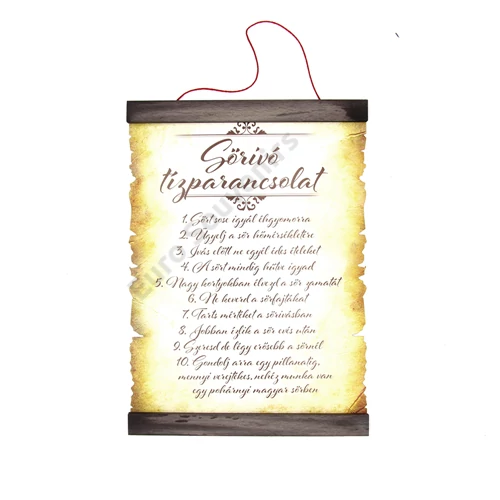 Sörivó
tízparancsolat
1. Sört sose igyál éhgyomorra
2. Ügyelj a sör hőmérsékletére
3. Ivás előtt ne egyél édes ételeket
4. A sört mindig hűtve igyad
5. Nagy kortyokban élvezd a sör zamatát
6. Ne keverd a sörfajtákat
7. Tarts mértéket a sörivásban
8. Jobban ízlik a sör evés után
9. Szeresd de légy erősebb a sörnél
10. Gondolj arra egy pillanatig,
mennyi verejtékes, nehéz munka van
egy pohárnyi magyar sörben
Euro Souvenirs